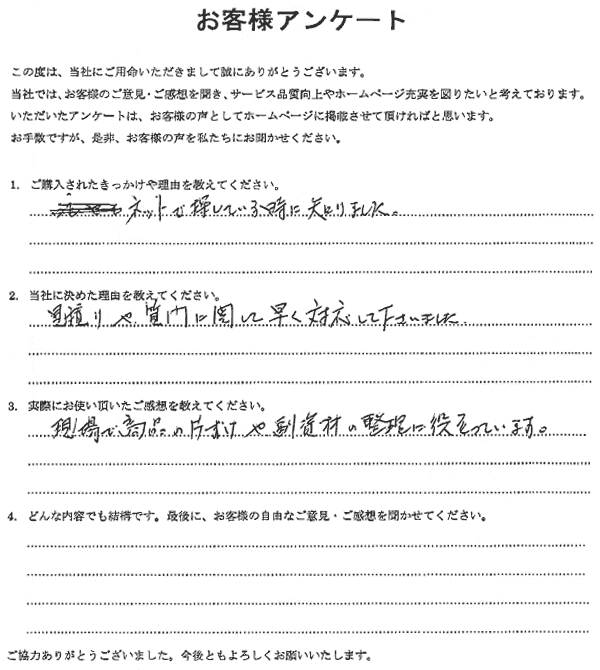 お客様アンケート
この度は、当社にご用命いただきまして誠にありがとうございます。
当社では、お客様のご意見・ご感想を聞き、サービス品質向上やホームページ充実を図りたいと考えております。
いただいたアンケートは、お客様の声としてホームページに掲載させて頂ければと思います。
お手数ですが、是非、お客様の声を私たちにお聞かせください。
1. ご購入されたきっかけや理由を教えてください。
ネットで探している時に知りました。
2. 当社に決めた理由を教えてください。
見積りや質問に関して早く対応して下さいました。
3. 実際にお使い頂いたご感想を教えてください。
現場で商品の片付けや副資材の整理に役立っています。
4. どんな内容でも結構です。最後に、お客様の自由なご意見・ご感想を聞かせてください。
ご協力ありがとうございました。今後ともよろしくお願いいたします。